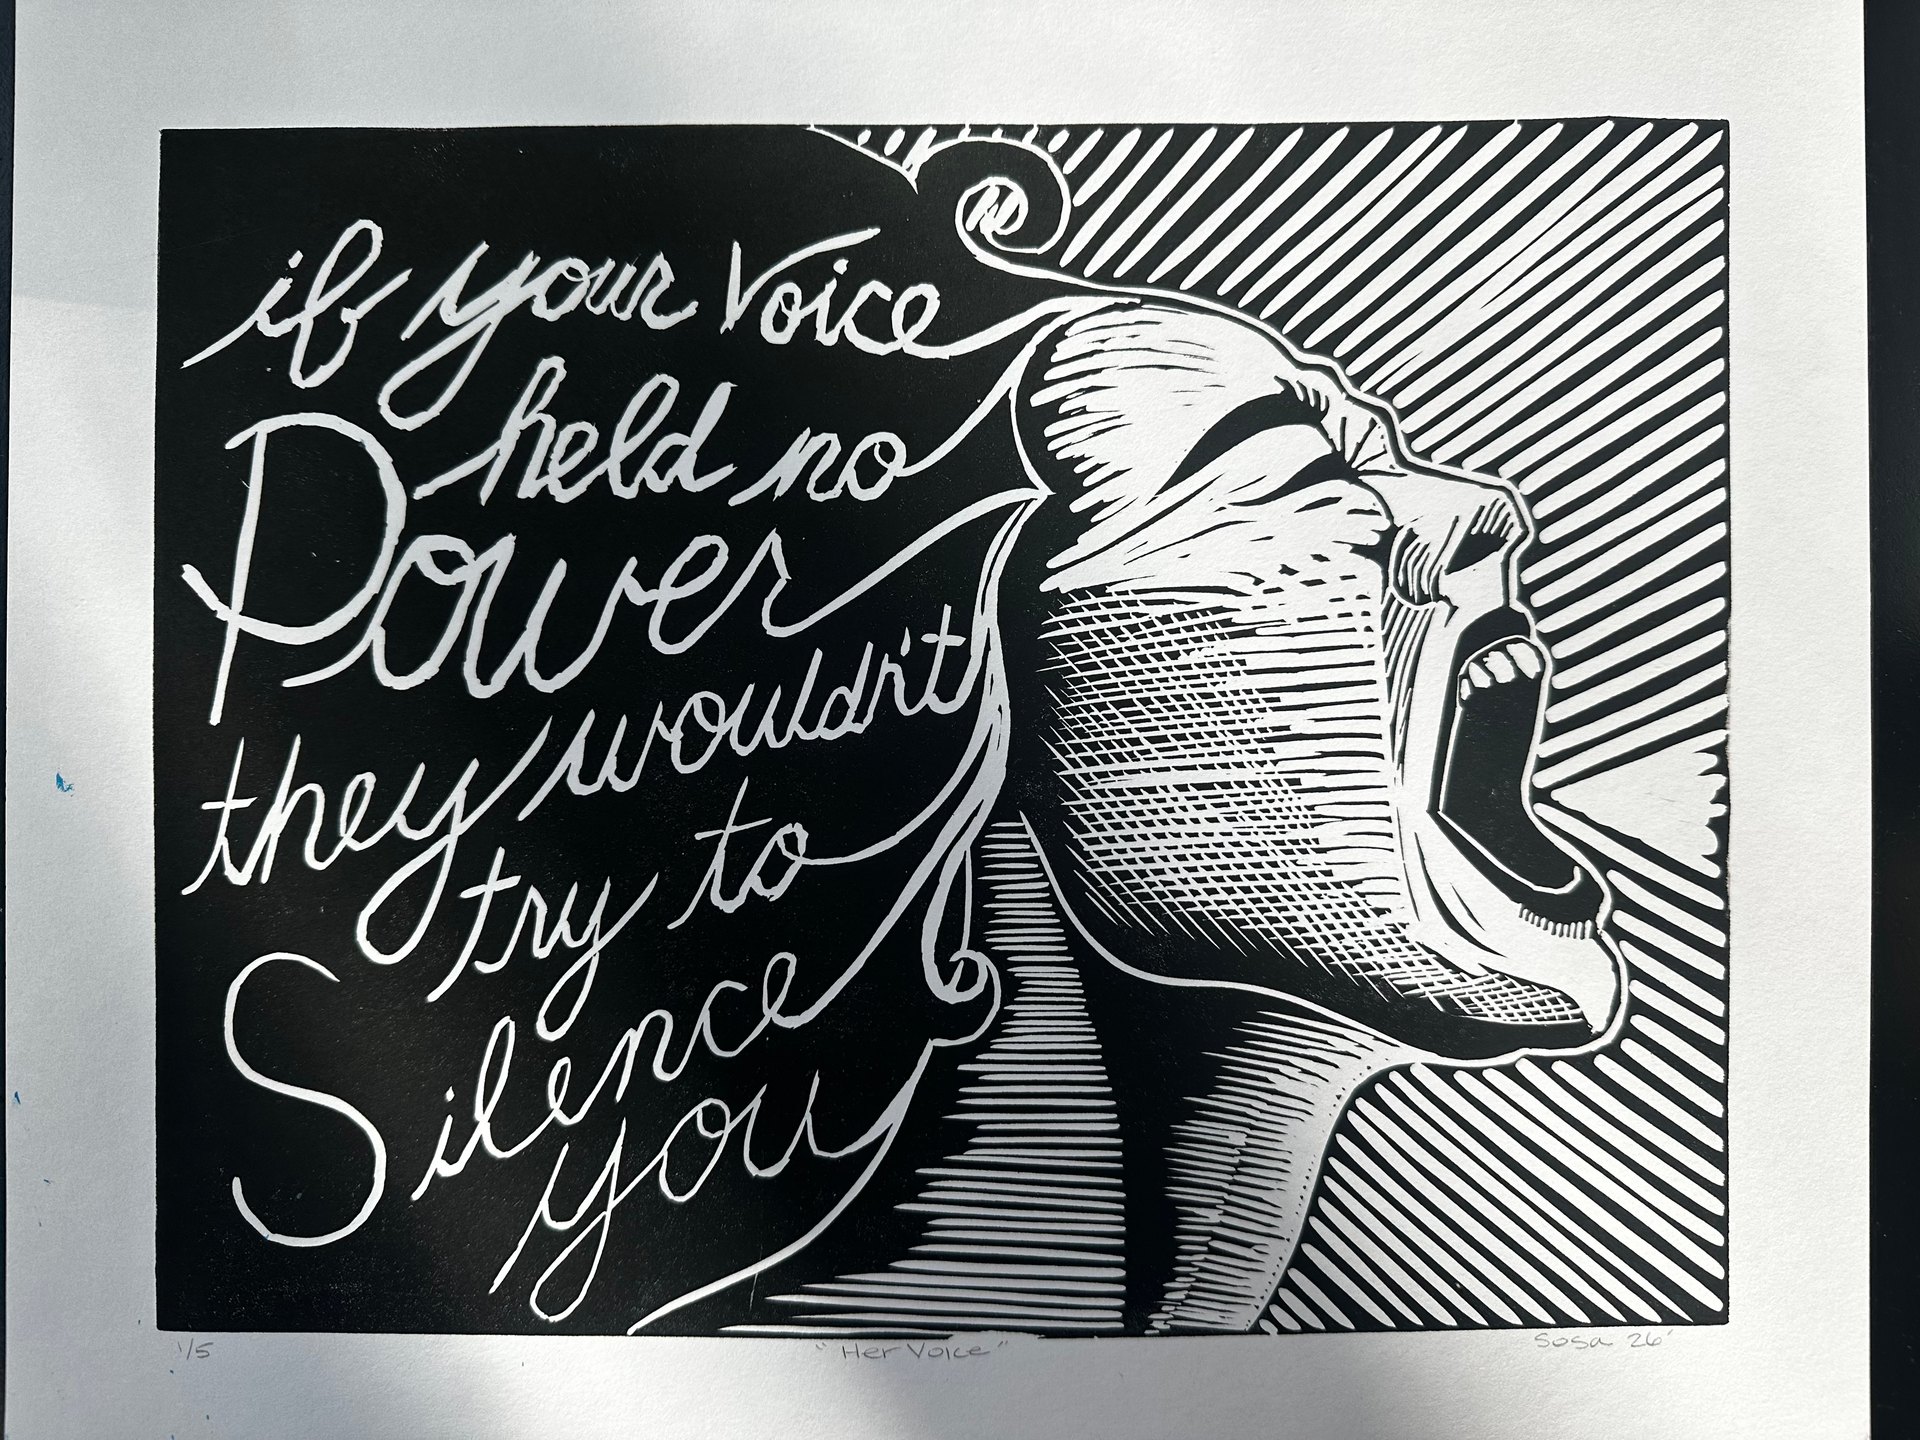 if your Voice
held no
Power
they wouldn't
try to
Silence
you
1/5
"Her Voice"
Sosa 26'